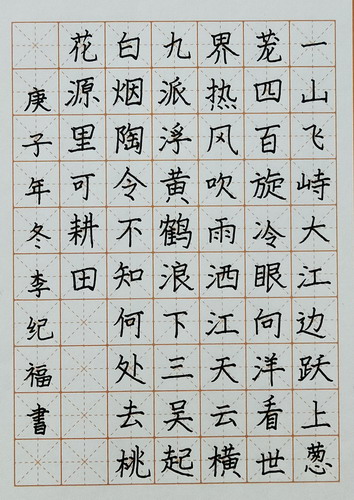 一山飞峙大江边跃上葱
茏四百旋冷眼向洋看世
界热风吹雨洒江天云横
九派浮黄鹤浪下三吴起
白烟陶令不知何处去桃
花源里可耕田
庚子年冬李纪福書